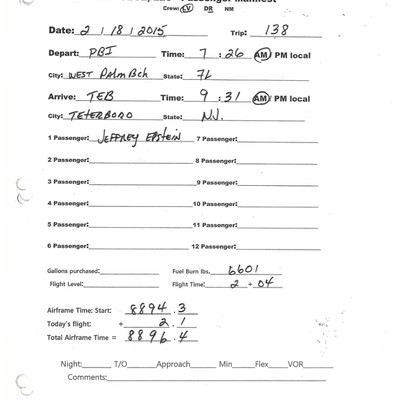 Passenger Manifest
Crew: LV DR NM
Date: 2 / 18 / 2015 Trip: 138
Depart: PBI Time: 7 : 26 AM/ PM local
City: WEST PALM BCH State: FL
Arrive: TEB Time: 9 : 31 AM/ PM local
City: TETERBORO State: NJ.
1 Passenger: JEFFREY EPSTEIN 7 Passenger:
2 Passenger: 8 Passenger:
3 Passenger: 9 Passenger:
4 Passenger: 10 Passenger:
5 Passenger: 11 Passenger:
6 Passenger: 12 Passenger:
Gallons purchased: Fuel Burn lbs. 6601
Flight Level: Flight Time: 2 + 04
Airframe Time: Start: 8894.3
Today's flight: + 2.1
Total Airframe Time = 8896.4
Night: T/O Approach Min Flex VOR
Comments: